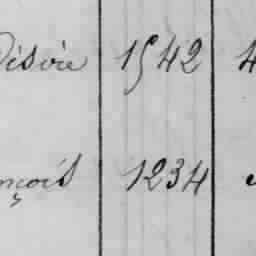 Désirée 1542 4
ançois 1234